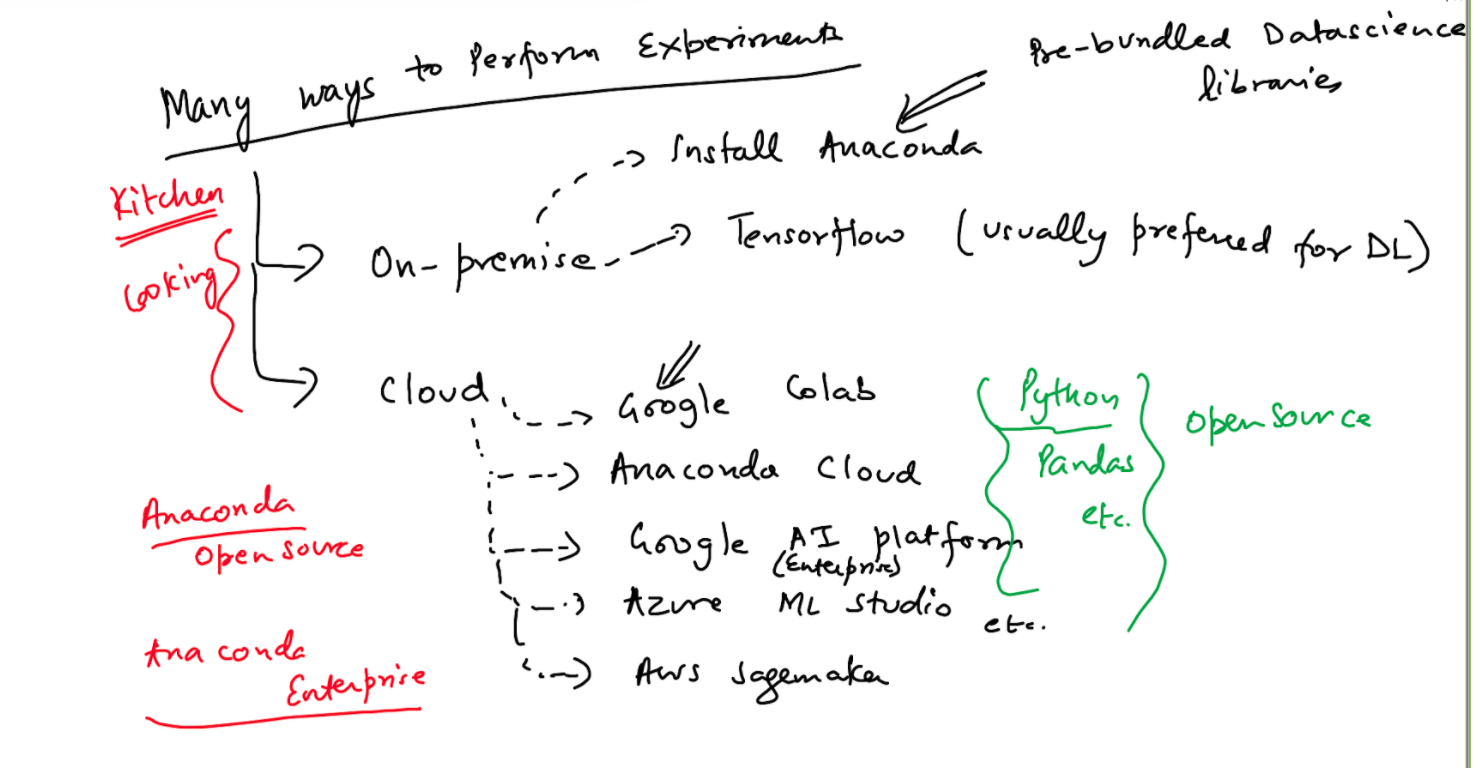 Many ways to Perform Experiments
Pre-bundled Datascience
libraries
Install Anaconda
Kitchen
Cooking
On-premise
Tensorflow (usually preferred for DL)
Cloud
Google Colab
Anaconda Cloud
Google AI platform
(Enterprise)
Azure ML Studio etc.
Aws Sagemaker
Python
Pandas
etc.
Open Source
Anaconda
Open Source
Anaconda
Enterprise